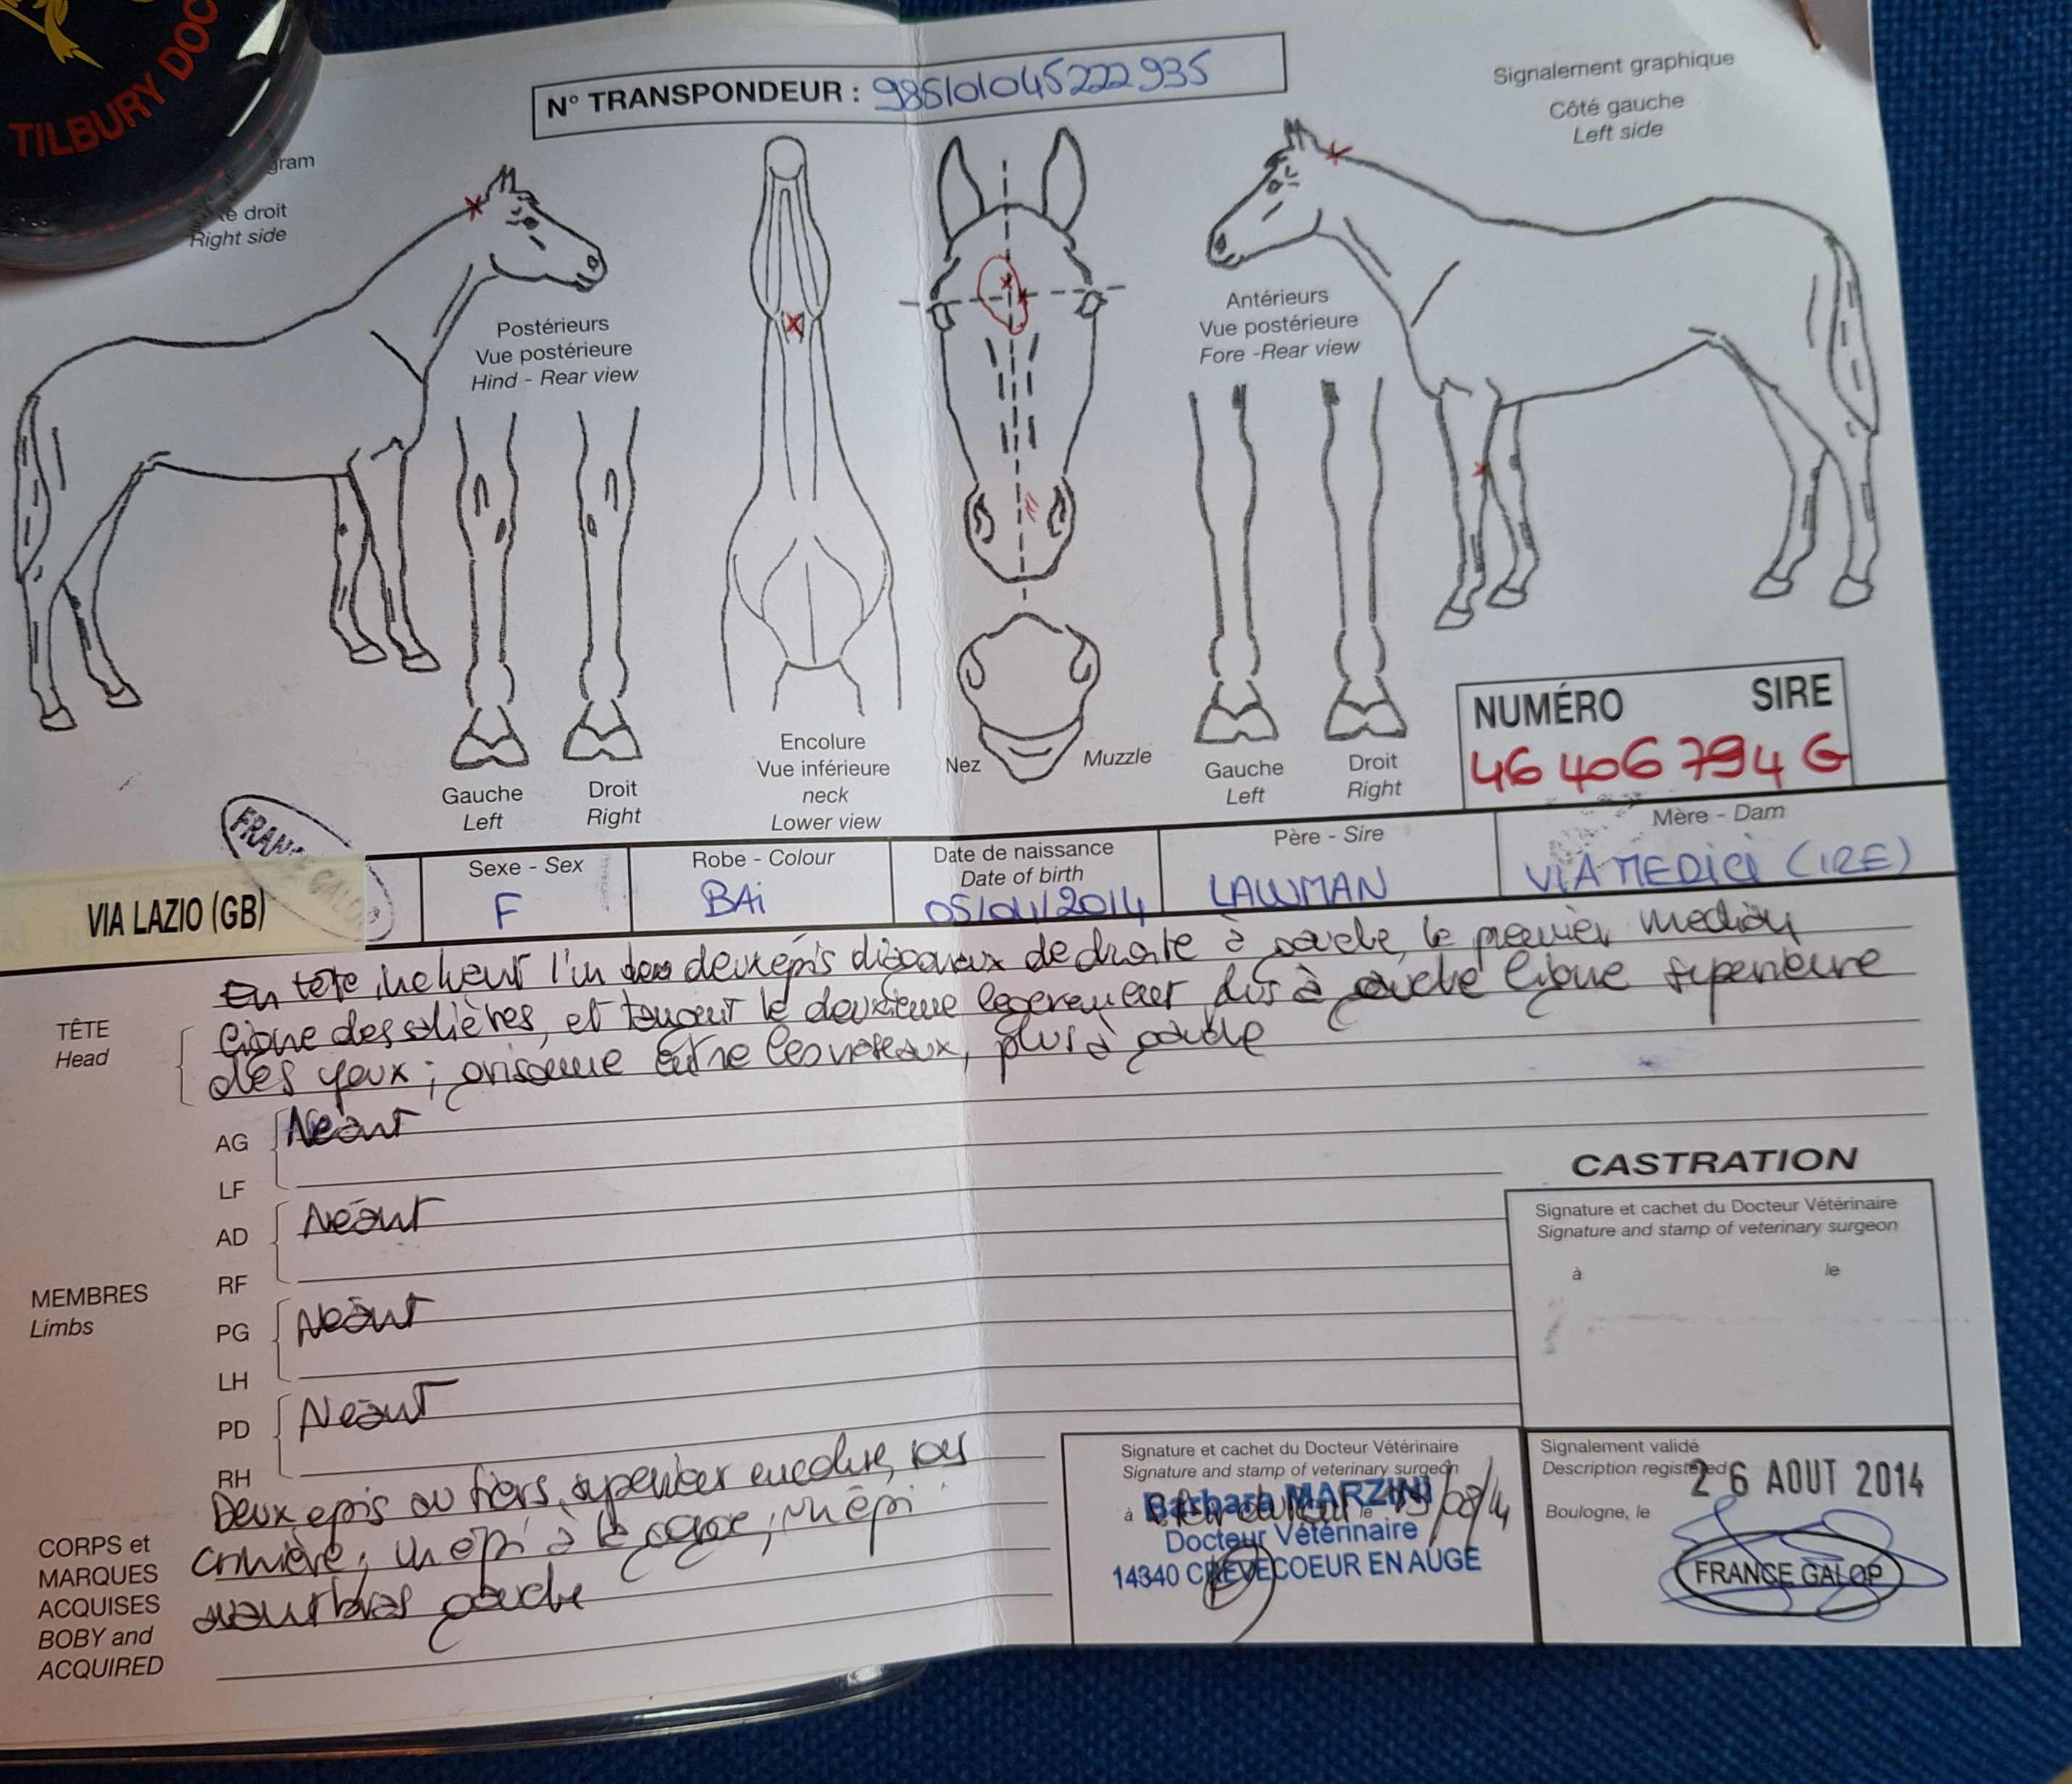 TILBURY DOC
N° TRANSPONDEUR : 985101045222935
Signalement graphique
gram
Côté gauche
Left side
e droit
Right side
Postérieurs
Vue postérieure
Hind - Rear view
Antérieurs
Vue postérieure
Fore -Rear view
NUMÉRO SIRE
46 406 794 G
Gauche
Left
Droit
Right
Encolure
Vue inférieure
neck
Lower view
Nez
Muzzle
Gauche
Left
Droit
Right
FRANCE GALOP
VIA LAZIO (GB)
Sexe - Sex
F
Robe - Colour
BAi
Date de naissance
Date of birth
05/04/2014
Père - Sire
LAWMAN
Mère - Dam
VIA MEDICI (IRE)
TÊTE
Head
En tête, incluant l'un des deux épis diagonaux de droite à gauche, le premier median
ligne des salières, et touchant le deuxieme legerement plus à gauche ligne superieure
des yeux ; grisaille entre les naseaux, plus à gauche
MEMBRES
Limbs
AG
LF
Neant
AD
RF
Neant
PG
LH
Neant
PD
RH
Neant
CORPS et
MARQUES
ACQUISES
BOBY and
ACQUIRED
Deux epis au tiers superieur encolure,
crinière ; un épi à la gorge ; un épi
avant bras gauche
CASTRATION
Signature et cachet du Docteur Vétérinaire
Signature and stamp of veterinary surgeon
à le
Signature et cachet du Docteur Vétérinaire
Signature and stamp of veterinary surgeon
à le /08/14
Barbara MARZINI
Docteur Vétérinaire
14340 CREVECOEUR EN AUGE
Signalement validé
Description registered
26 AOUT 2014
Boulogne, le
FRANCE GALOP